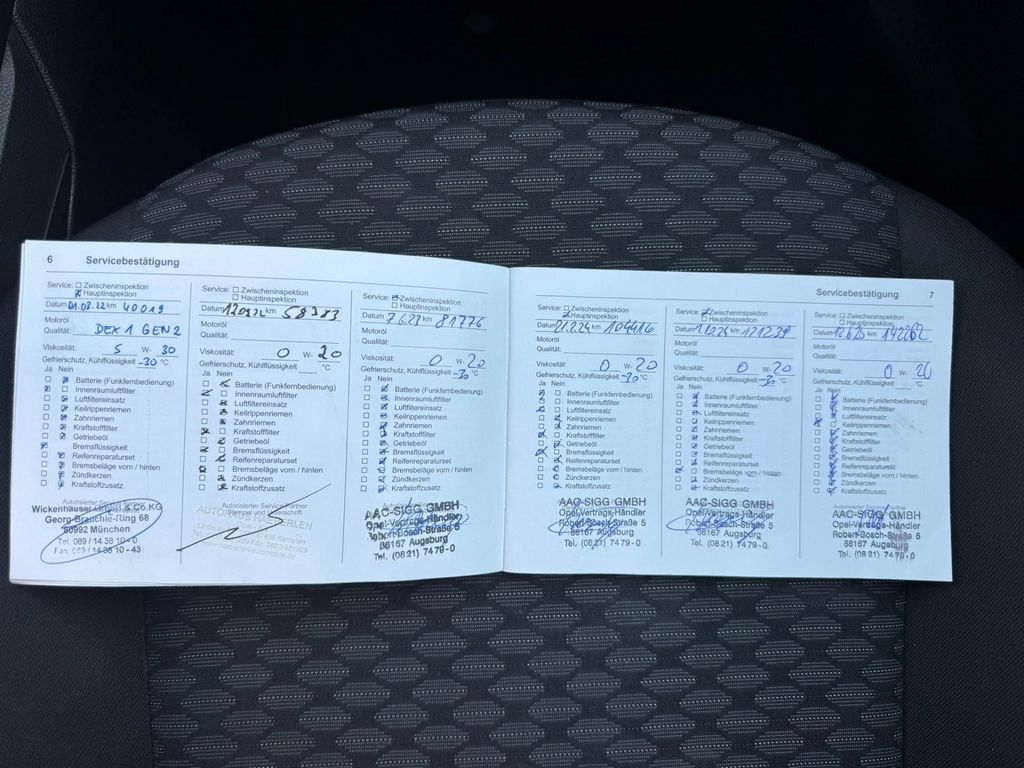 6 Servicebestätigung
Service: Zwischeninspektion
Hauptinspektion
Datum 01.03.22 km 40019
Motoröl
Qualität: DEX 1 GEN 2
Viskosität: 5 W- 30
Gefrierschutz, Kühlflüssigkeit -30 °C
Ja Nein
Batterie (Funkfernbedienung)
Innenraumluftfilter
Luftfiltereinsatz
Keilrippenriemen
Zahnriemen
Kraftstofffilter
Getriebeöl
Bremsflüssigkeit
Reifenreparaturset
Bremsbeläge vorn / hinten
Zündkerzen
Kraftstoffzusatz
Autorisierter Service Partner
Wickenhäuser GmbH & Co.KG
Georg-Brauchle-Ring 68
80992 München
Tel. 089 / 14 38 10 - 0
Fax 089 / 14 38 10 - 43
Service: Zwischeninspektion
Hauptinspektion
Datum km
Motoröl
Qualität:
Viskosität: 0 W- 20
Gefrierschutz, Kühlflüssigkeit °C
Ja Nein
Batterie (Funkfernbedienung)
Innenraumluftfilter
Luftfiltereinsatz
Keilrippenriemen
Zahnriemen
Kraftstofffilter
Getriebeöl
Bremsflüssigkeit
Reifenreparaturset
Bremsbeläge vorn / hinten
Zündkerzen
Kraftstoffzusatz
Autorisierter Service Partner
Stempel und Unterschrift
AUTOHAUS HAEBERLEN
Service: Zwischeninspektion
Hauptinspektion
Datum 7.6.23 km 81776
Motoröl
Qualität:
Viskosität: 0 W- 20
Gefrierschutz, Kühlflüssigkeit -30 °C
Ja Nein
Batterie (Funkfernbedienung)
Innenraumluftfilter
Luftfiltereinsatz
Keilrippenriemen
Zahnriemen
Kraftstofffilter
Getriebeöl
Bremsflüssigkeit
Reifenreparaturset
Bremsbeläge vorn / hinten
Zündkerzen
Kraftstoffzusatz
AAC-SIGG GMBH
Opel-Vertrags-Händler
Robert-Bosch-Straße 5
86167 Augsburg
Tel. (08 21) 74 79 - 0
Servicebestätigung 7
Service: Zwischeninspektion
Hauptinspektion
Datum 21.2.24 km 104416
Motoröl
Qualität:
Viskosität: 0 W- 20
Gefrierschutz, Kühlflüssigkeit -30 °C
Ja Nein
Batterie (Funkfernbedienung)
Innenraumluftfilter
Luftfiltereinsatz
Keilrippenriemen
Zahnriemen
Kraftstofffilter
Getriebeöl
Bremsflüssigkeit
Reifenreparaturset
Bremsbeläge vorn / hinten
Zündkerzen
Kraftstoffzusatz
AAC-SIGG GMBH
Opel-Vertrags-Händler
Robert-Bosch-Straße 5
86167 Augsburg
Tel. (08 21) 74 79 - 0
Service: Zwischeninspektion
Hauptinspektion
Datum km 121239
Motoröl
Qualität:
Viskosität: 0 W- 20
Gefrierschutz, Kühlflüssigkeit -30 °C
Ja Nein
Batterie (Funkfernbedienung)
Innenraumluftfilter
Luftfiltereinsatz
Keilrippenriemen
Zahnriemen
Kraftstofffilter
Getriebeöl
Bremsflüssigkeit
Reifenreparaturset
Bremsbeläge vorn / hinten
Zündkerzen
Kraftstoffzusatz
AAC-SIGG GMBH
Opel-Vertrags-Händler
Robert-Bosch-Straße 5
86167 Augsburg
Tel. (08 21) 74 79 - 0
Service: Zwischeninspektion
Hauptinspektion
Datum 12.6.25 km
Motoröl
Qualität:
Viskosität: 0 W- 20
Gefrierschutz, Kühlflüssigkeit °C
Ja Nein
Batterie (Funkfernbedienung)
Innenraumluftfilter
Luftfiltereinsatz
Keilrippenriemen
Zahnriemen
Kraftstofffilter
Getriebeöl
Bremsflüssigkeit
Reifenreparaturset
Bremsbeläge vorn / hinten
Zündkerzen
Kraftstoffzusatz
Autorisierter Service Partner
AAC-SIGG GMBH
Opel-Vertrags-Händler
Robert-Bosch-Straße 5
86167 Augsburg
Tel. (08 21) 74 79 - 0